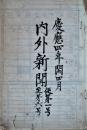 慶應四年閏四月
内外新聞
従第一号
至第六号